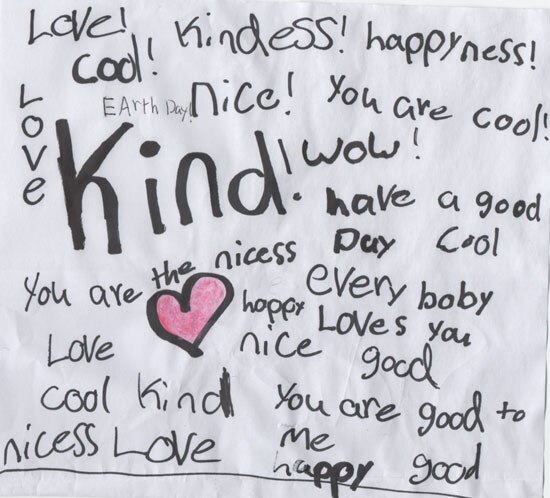 Love! Kindess! happyness!
Cool!
EArth Day! nice! You are cool!
Love
Kind! wow!
have a good
Day Cool
You are the nicess
every boby
happy Loves you
Love nice good
cool Kind You are good to
me
nicess Love happy good